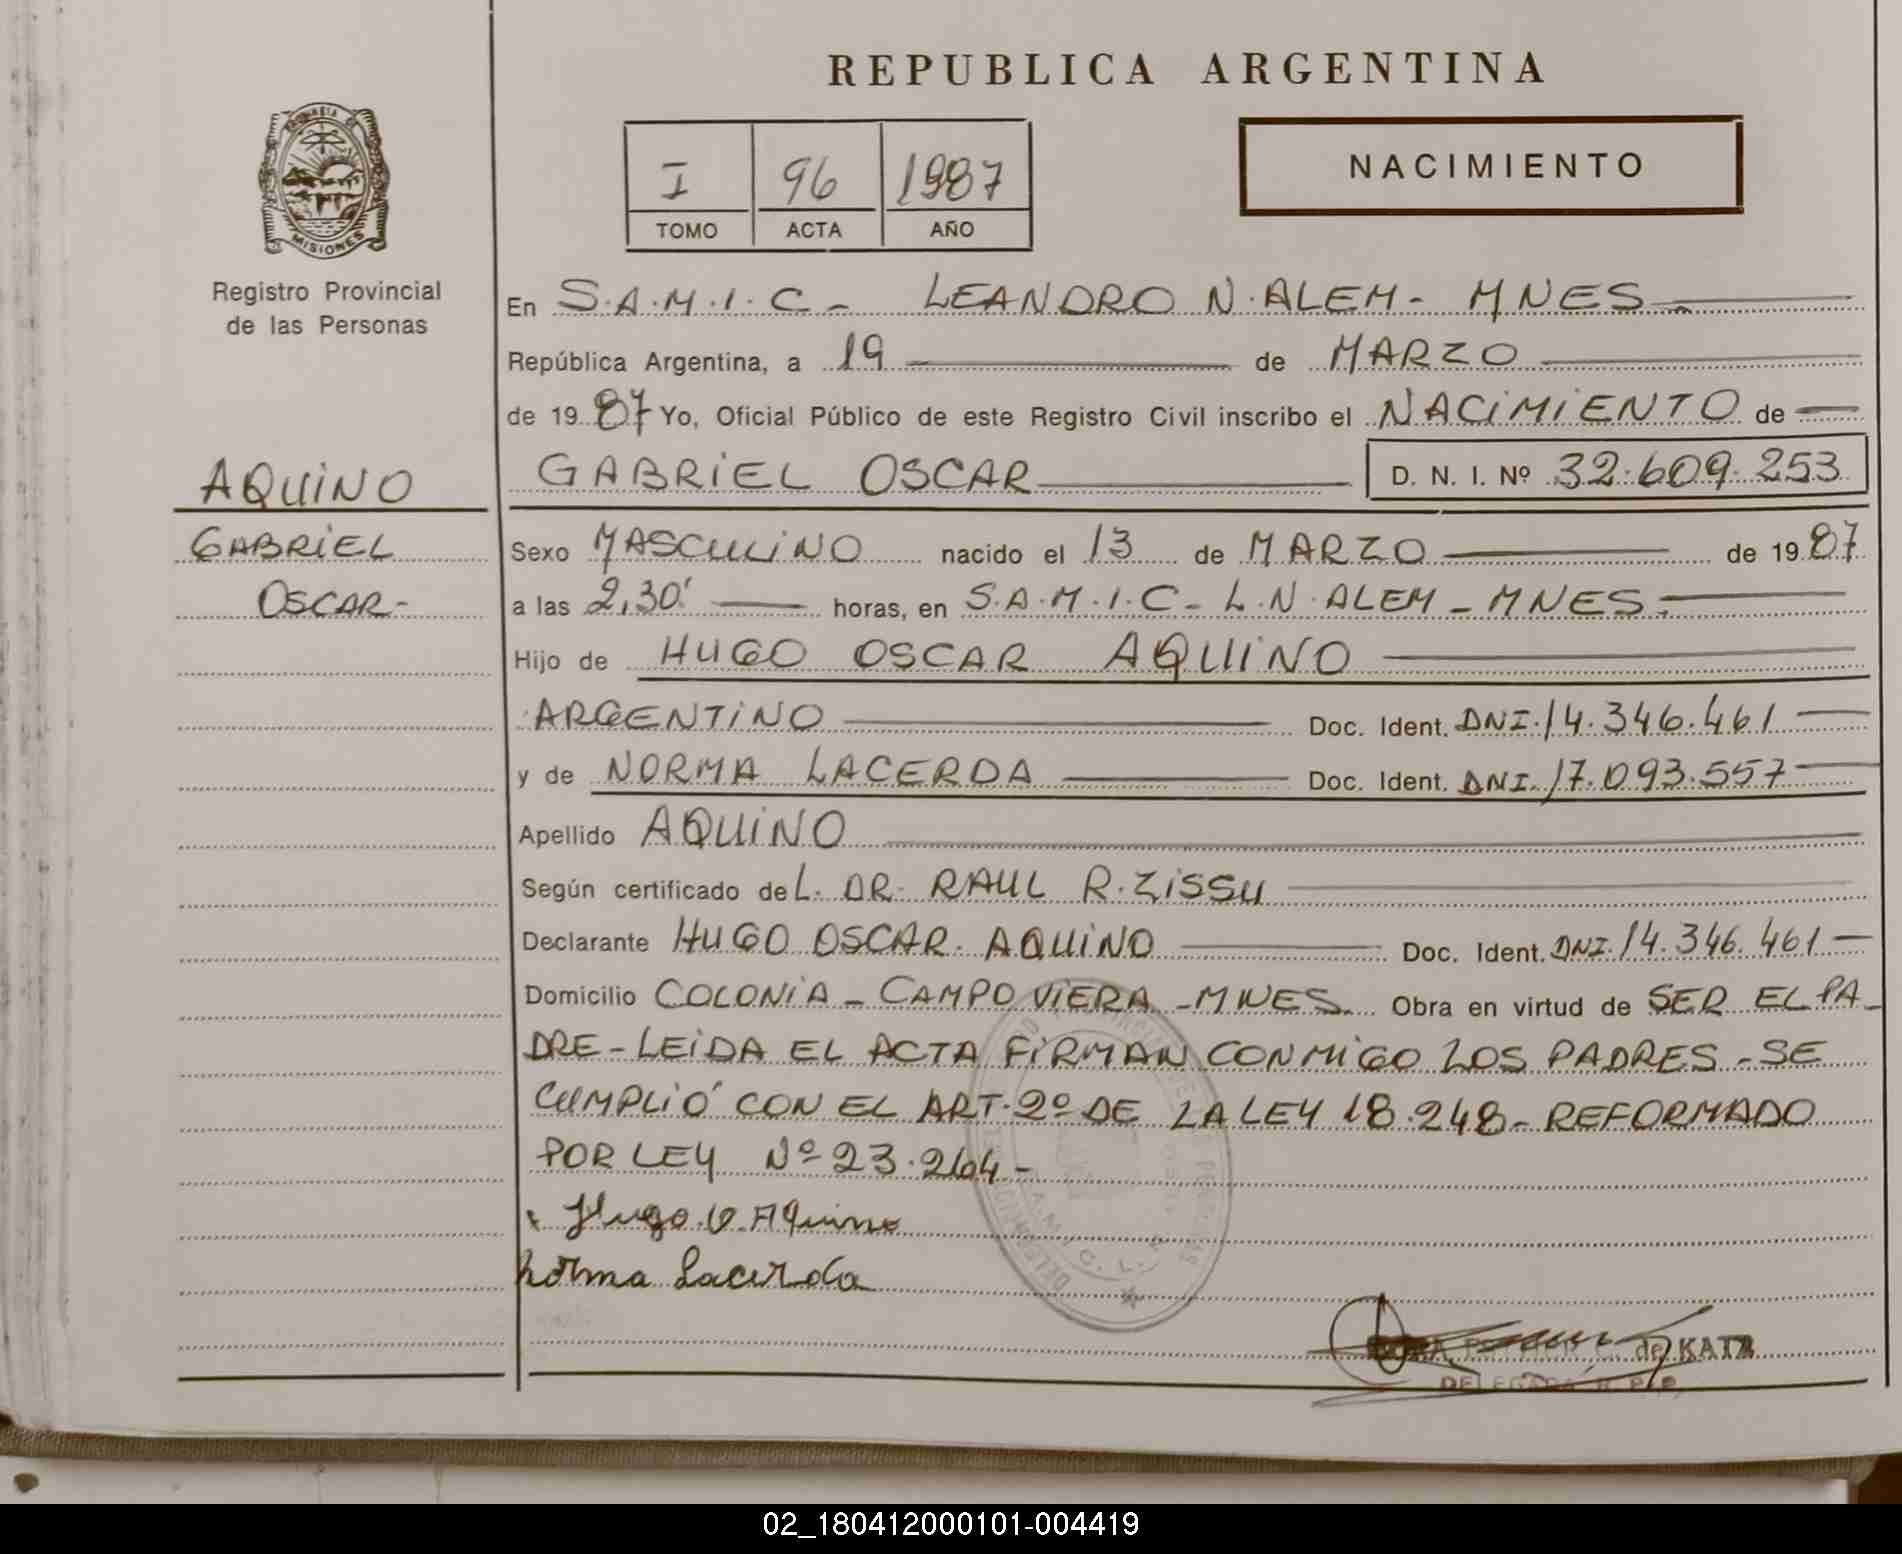 REPUBLICA ARGENTINA
PROVINCIA DE
MISIONES
Registro Provincial
de las Personas
I 96 1987
TOMO ACTA AÑO
NACIMIENTO
AQUINO
GABRIEL
OSCAR-
En S.A.M.I.C- LEANDRO N. ALEM- MNES
República Argentina, a 19 de MARZO
de 1987 Yo, Oficial Público de este Registro Civil inscribo el NACIMIENTO de
GABRIEL OSCAR D. N. I. Nº 32.609.253
Sexo MASCULINO nacido el 13 de MARZO de 1987
a las 2,30' horas, en S.A.M.I.C- L.N. ALEM - MNES.
Hijo de HUGO OSCAR AQUINO
ARGENTINO Doc. Ident. DNI.14.346.461
y de NORMA LACERDA Doc. Ident. DNI.17.093.557
Apellido AQUINO
Según certificado deL. DR. RAUL R. ZISSU
Declarante HUGO OSCAR. AQUINO Doc. Ident. DNI.14.346.461
Domicilio COLONIA - CAMPO VIERA - MNES Obra en virtud de SER EL PA-
DRE - LEIDA EL ACTA FIRMAN CONMIGO LOS PADRES - SE
CUMPLIÓ CON EL ART. 2º DE LA LEY 18.248 - REFORMADO
POR LEY Nº 23.264 -
Hugo O. Aquino
Norma Lacerda
de KATZ
DELEGADA R. P. P.
02_180412000101-004419